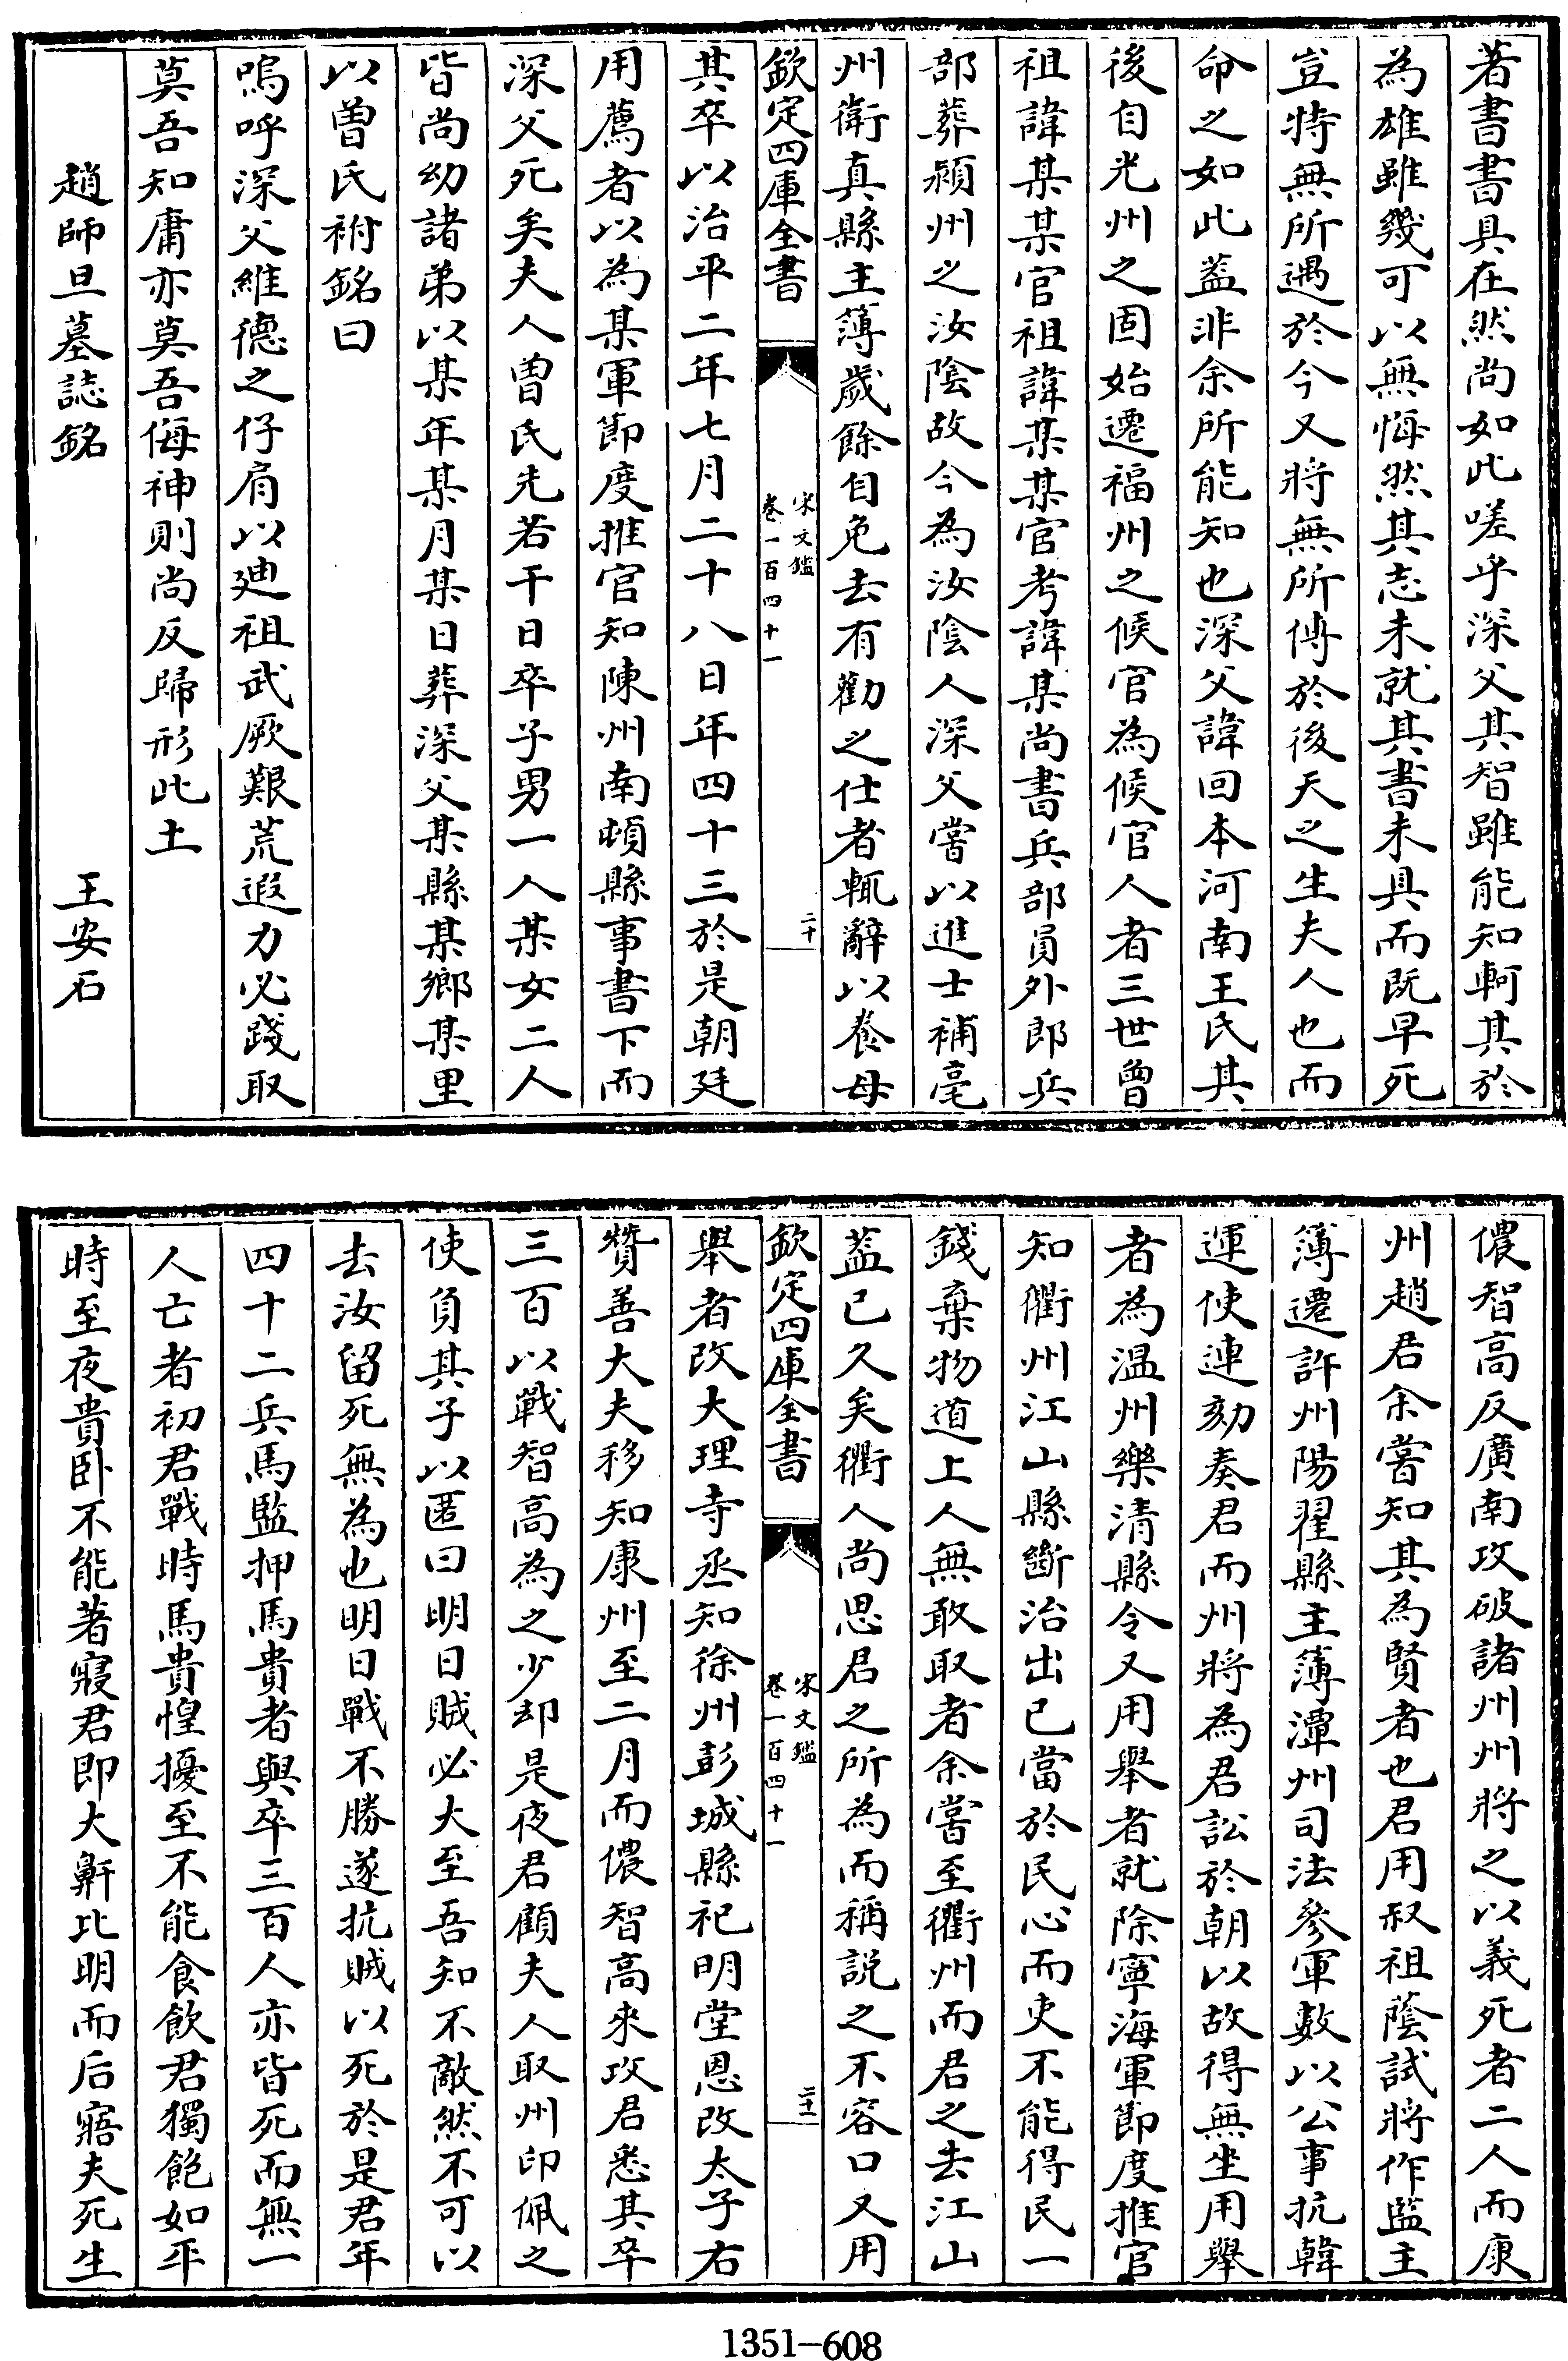 著書書具在然尚如此嗟乎深父其智雖能知軻其於
為雄雖幾可以無悔然其志未就其書未具而既早死
豈特無所遇於今又將無所傳於後天之生夫人也而
命之如此蓋非余所能知也深父諱回本河南王氏其
後自光州之固始遷福州之候官為候官人者三世曾
祖諱某某官祖諱某某官考諱某尚書兵部員外郎兵
部葬潁州之汝陰故今為汝陰人深父嘗以進士補亳
州衛真縣主簿歲餘自免去有勸之仕者輒辭以養母
欽定四庫全書
宋文鑑
卷一百四十一
二十
其卒以治平二年七月二十八日年四十三於是朝廷
用薦者以為某軍節度推官知陳州南頓縣事書下而
深父死矣夫人曾氏先若干日卒子男一人某女二人
皆尚幼諸弟以某年某月某日葬深父某縣某鄉某里
以曾氏祔銘曰
嗚呼深父維德之仔肩以迪祖武厥艱荒遐力必踐取
莫吾知庸亦莫吾侮神則尚反歸形此土
趙師旦墓誌銘 王安石
儂智高反廣南攻破諸州州將之以義死者二人而康
州趙君余嘗知其為賢者也君用叔祖蔭試將作監主
簿遷許州陽翟縣主簿潭州司法參軍數以公事抗韓
運使連劾奏君而州將為君訟於朝以故得無坐用舉
者為溫州樂清縣令又用舉者就除寧海軍節度推官
知衢州江山縣斷治出已當於民心而吏不能得民一
錢棄物道上人無敢取者余嘗至衢州而君之去江山
蓋已久矣衢人尚思君之所為而稱說之不容口又用
欽定四庫全書
宋文鑑
卷一百四十一
二十一
舉者改大理寺丞知徐州彭城縣祀明堂恩改太子右
贊善大夫移知康州至二月而儂智高來攻君悉其卒
三百以戰智高為之少却是夜君顧夫人取州印佩之
使負其子以匿曰明日賊必大至吾知不敵然不可以
去汝留死無為也明日戰不勝遂抗賊以死於是君年
四十二兵馬監押馬貴者與卒三百人亦皆死而無一
人亡者初君戰時馬貴惶擾至不能食飲君獨飽如平
時至夜貴卧不能著寢君即大鼾比明而后寤夫死生
1351—608